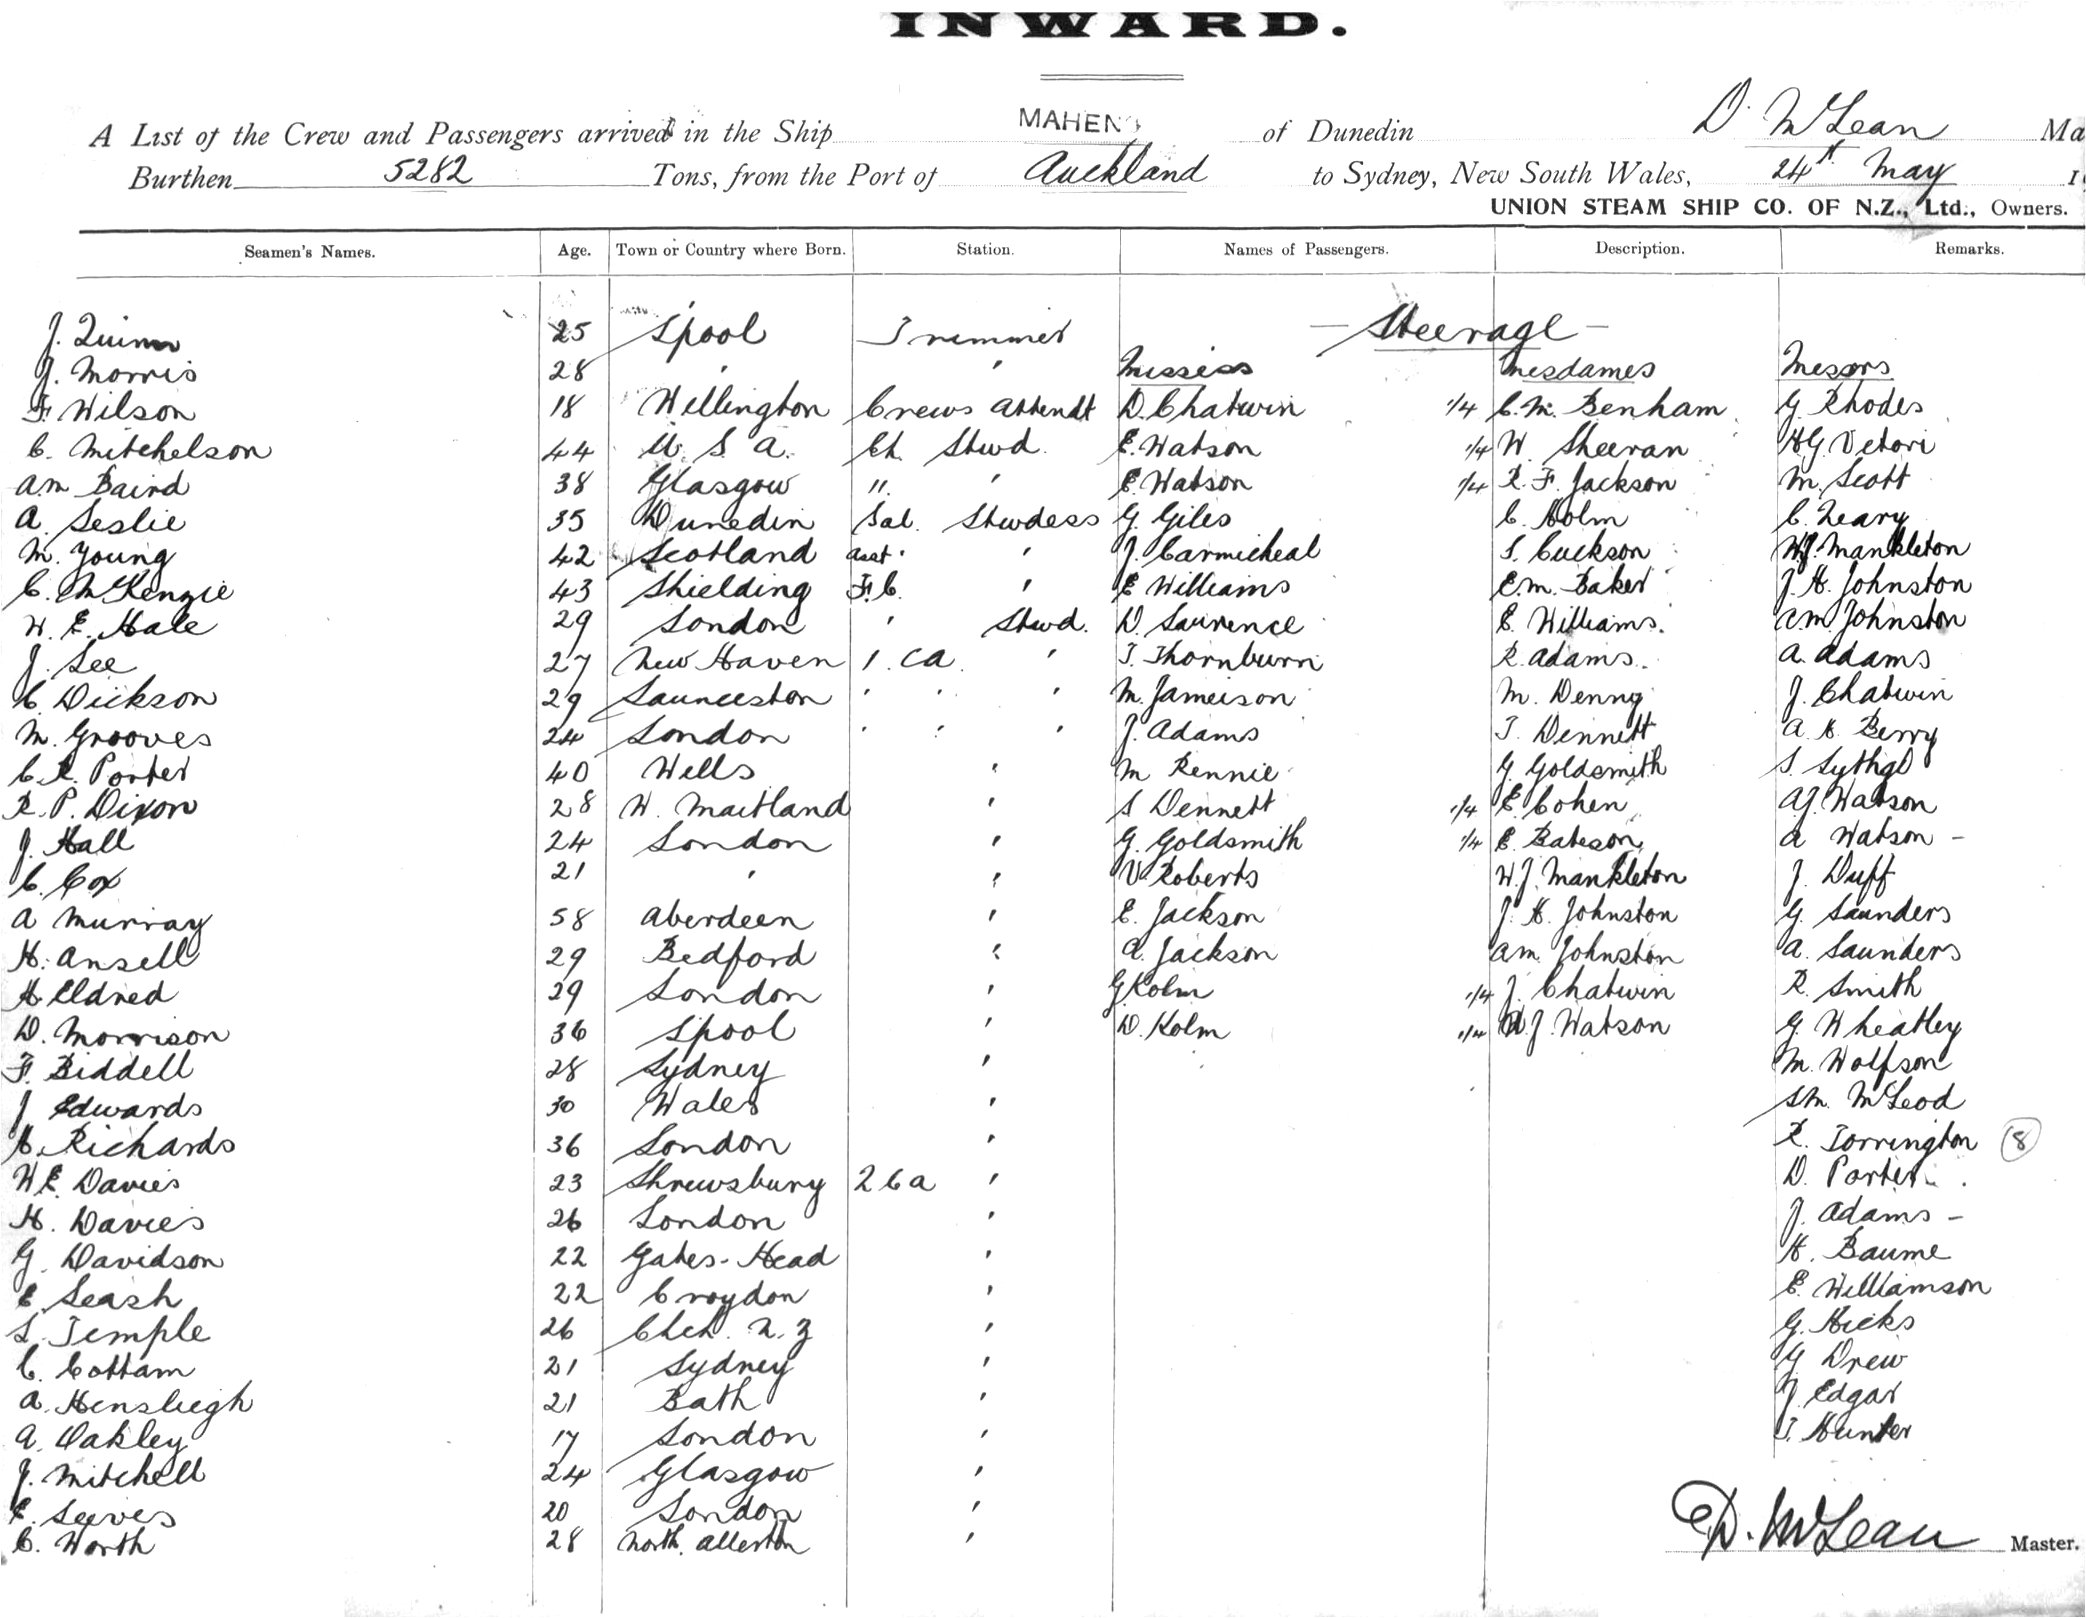 INWARD.
A List of the Crew and Passengers arrived in the Ship MAHENO of Dunedin D. McLean Ma
Burthen 5282 Tons, from the Port of Auckland to Sydney, New South Wales, 24th May 19
UNION STEAM SHIP CO. OF N.Z., Ltd., Owners.
Seamen's Names. Age. Town or Country where Born. Station. Names of Passengers. Description. Remarks.
J. Quinn 25 L'pool Trimmer — Steerage —
J. Morris 28 ' ' Missess Mesdames Messrs
F. Wilson 18 Wellington Crews Attendt D. Chatwin 1/4 C. M. Benham G. Rhodes
C. Mitchelson 44 U. S. A. Ch. Stwd. E. Watson 1/4 W. Sheeran H.G. Vetori
A.M Baird 38 Glasgow " ' E. Watson 1/4 R. F. Jackson M. Scott
A. Leslie 35 Dunedin Sal. Stwdess G. Giles C. Holm C. Neary
M. Young 42 Scotland Asst ' ' J. Carmicheal S. Cuckson W.J. Mankleton
C. McKenzie 43 Shielding F.C. ' E Williams E.M. Baker J. H. Johnston
W. E. Hale 29 London ' Stwd. D. Laurence E. Williams. A.M. Johnston
J. Lee 27 New Haven 1. Ca. ' T. Thornburn R. Adams. A. Adams
C. Dickson 29 Launceston ' ' ' M. Jameison M. Denny J. Chatwin
M. Grooves 24 London ' ' ' J. Adams T. Dennett A. H. Berry
C. R. Porter 40 Wells ' M Rennie G. Goldsmith S.
R. P. Dixon 28 W. Maitland ' S Dennett 1/4 E. Cohen A.J. Watson
J. Hall 24 London ' G. Goldsmith 1/4 E. Bateson A Watson –
C. Cox 21 ' ' V Roberts W. J. Mankleton J. Duff
A Murray 58 Aberdeen ' E. Jackson J. H. Johnston G. Saunders
H. Ansell 29 Bedford ' A. Jackson A.M. Johnston A. Saunders
H Eldred 29 London ' G Kolm 1/4 J. Chatwin R. Smith
D. Morrison 36 L'pool ' D. Kolm 1/4 W. J. Watson G. Wheatley
F. Biddell 28 Sydney ' M. Wolfson
J Edwards 30 Wales ' S.M. McLeod
H. Richards 36 London ' R. Torrington 8
W E. Davies 23 Shrewsbury 2 Ca ' D. Porter.
H. Davies 26 London ' J. Adams –
G. Davidson 22 Gates-Head ' H. Baume
E. Leash 22 Croydon ' E. Williamson
L. Temple 26 Chch. N.Z ' G. Hicks
C. Cottam 21 Sydney ' G Drew
A. Hensleigh 21 Bath ' J Edgar
A. Oakley 17 London ' T. Hunter
J. Mitchell 24 Glasgow '
E. Leeves 20 London '
C. Worth 28 North. Allerton '
D. McLean Master.